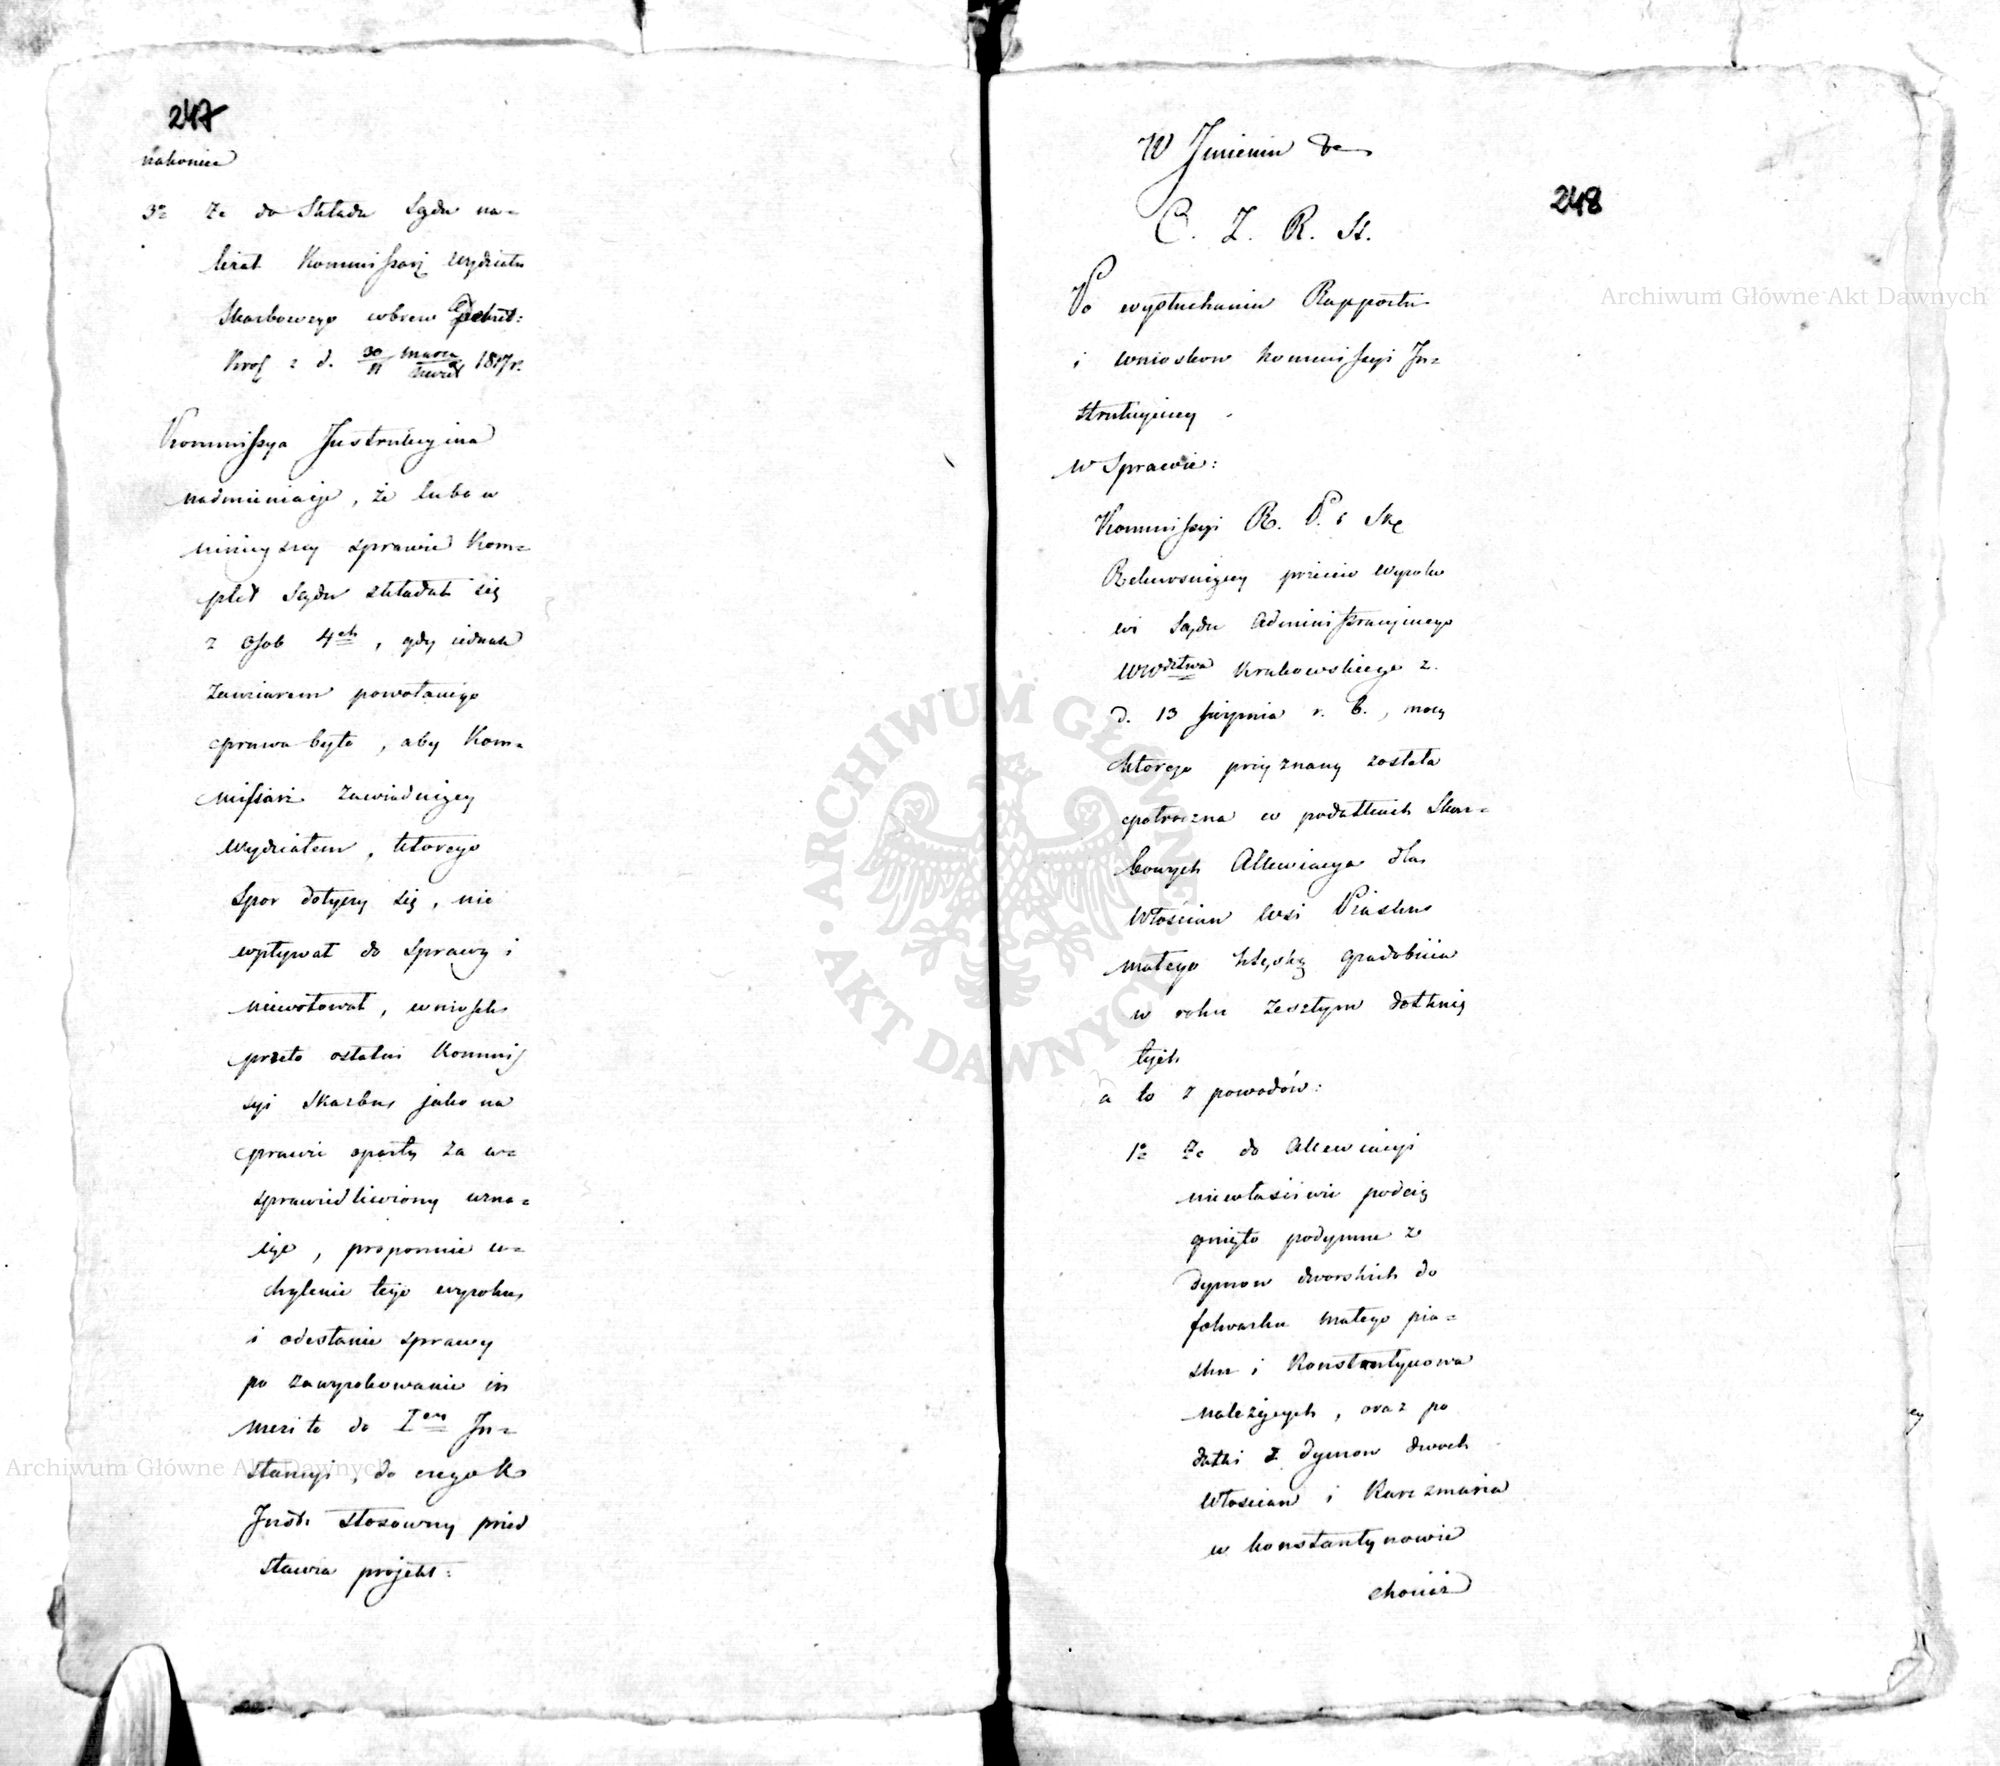 247
nakoniec
3º Ze do Składu Sądu na=
leżał Kommissarz Wydziału
Skarbowego wbrew
Król z d. 30/11 marca 1817 r.
Kommissya Instrukcyina
nadmieniaiąc, że lubo w
ninieyszey sprawie Kom=
plet Sądu składał się
z osob 4ech, gdy iednak
zamiarem powołanego
prawa było, aby Kom=
missarz zawiaduiący
wydziałem, którego
Spor dotyczy się, nie
wpływał do Sprawy i
niewotował, wniosek
przeto ostatni Kommis
syi Skarbu, jako na
prawie oparty za u=
sprawiedliwiony uzna=
iąc, proponuie u=
chylenie tego wyroku,
i odesłanie sprawy
po zawyrokowanie in
merito do Iey In=
stancyi, do czego K
Instr: stosowny przed
stawia projekt:
W Imieniu &c
248
C. Z. R. St.
Po wysłuchaniu Rapportu
i wniosków Kommissyi In=
strukcyiney
w Sprawie:
Kommissyi R. P. i Sk
Rekursuiącey przeciw wyroko
wi Sądu Administracyinego
Wwdztwa Krakowskiego z
d. 13 Sierpnia r. b., mocą
którego przyznaną została
półroczna w podatkach Skar=
bowych Allewiacya dla
Włościan wsi Piasku
małego klęską gradobicia
w roku zeszłym dotknię
tych
a to z powodów:
1º Że do Allewiacyi
niewłaściwie podcią
gnięto podymne z
dymow dworskich do
folwarku małego pia=
sku i Konstantynowa
należących, oraz po
datki z dymow dwoch
Włościan i Karczmarza
w Konstantynowie
chociaż
Archiwum Główne Akt Dawnych
Archiwum Główne Akt Dawnych
ARCHIWUM GŁÓWNE AKT DAWNYCH